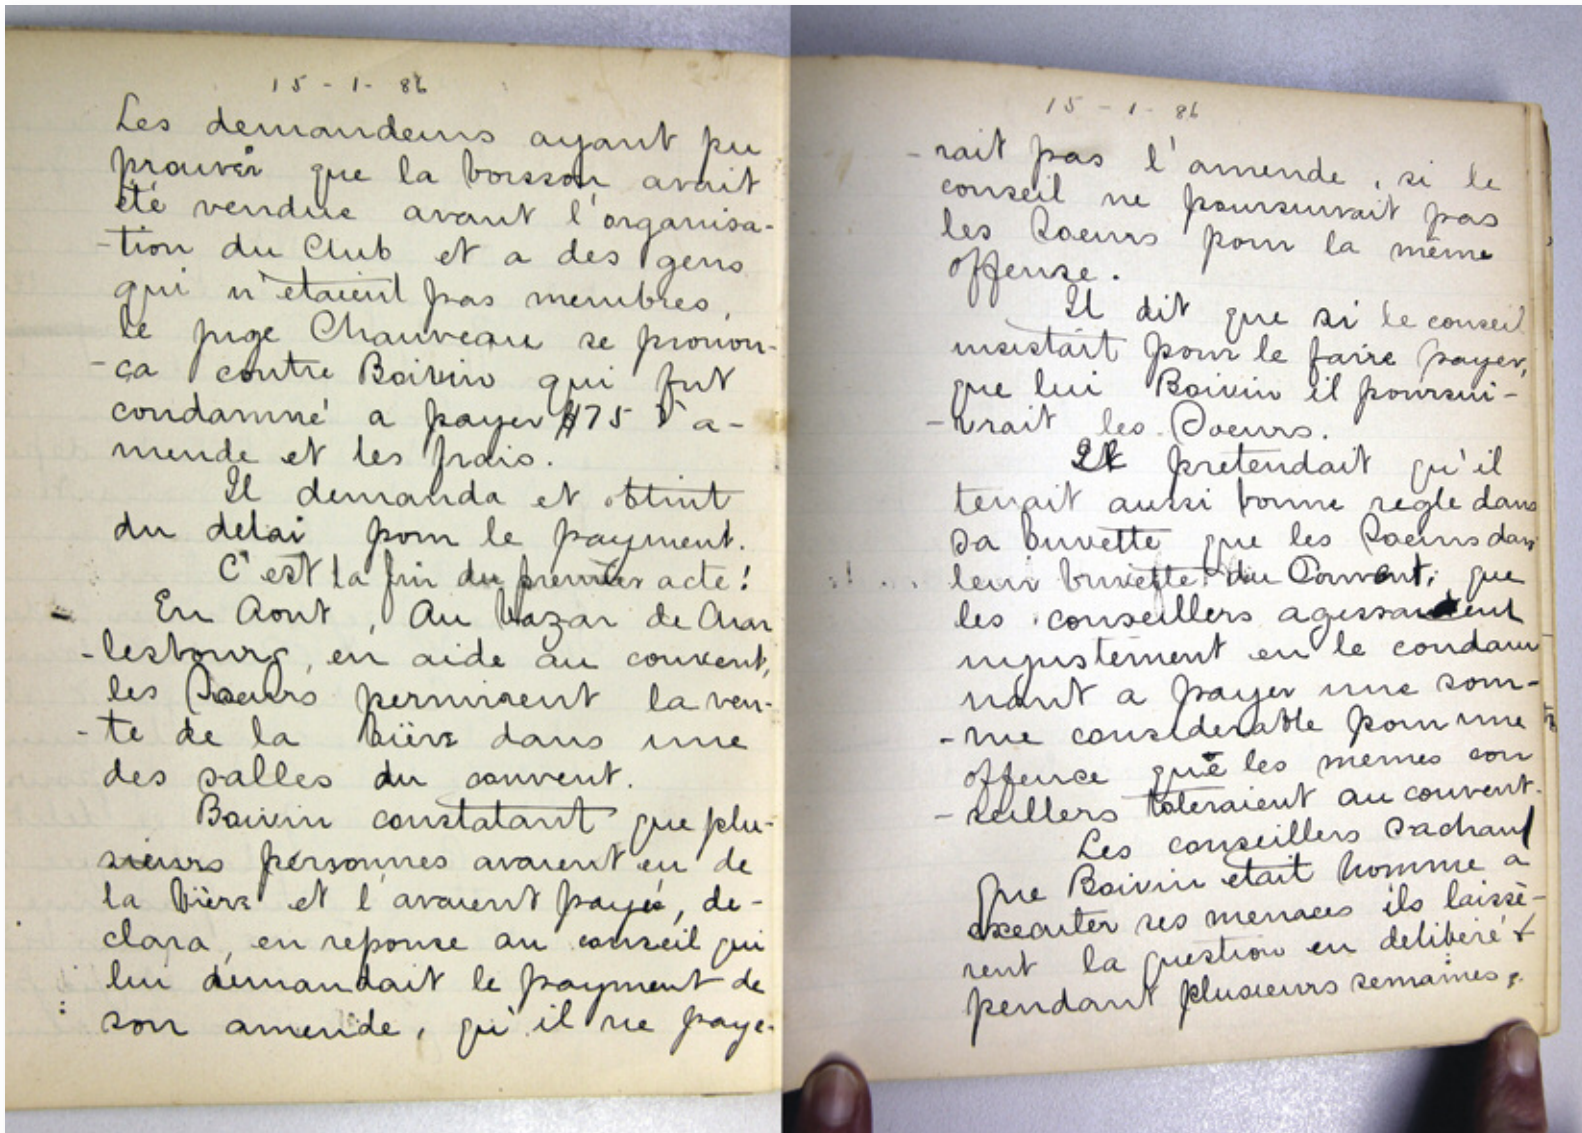 15 - 1 - 86
Les demandeurs ayant pu
prouver que la boisson avait
été vendue avant l'organisa-
-tion du Club et a des gens
qui n'étaient pas membres,
le juge Chauveau se pronon-
-ça contre Boivin qui fut
condamné a payer $75 d'a-
mende et les frais.
Il demanda et obtint
du delai pour le payment.
C'est la fin du premier acte!
En Aout, Au bazar de Char
-lesbourg, en aide au couvent,
les Soeurs permirent la ven-
-te de la bière dans une
des salles du couvent.
Boivin constatant que plu-
sieurs personnes avaient eu de
la bière et l'avaient payée, de-
clara, en reponse au conseil qui
lui demandait le payment de
son amende, qu'il ne paye-
15 - 1 - 86
-rait pas l'amende, si le
conseil ne poursuivait pas
les Soeurs pour la même
offense.
Il dit que si le conseil
insistait pour le faire payer,
que lui Boivin il poursui-
-vrait les Soeurs.
Il pretendait qu'il
tenait aussi bonne regle dans
sa buvette que les Soeurs dans
leur buvette du Couvent; que
les conseillers agissaient
injustement en le condam
nant a payer une som-
-me considerable pour une
offence que les memes con
-seillers toleraient au couvent.
Les conseillers sachant
que Boivin etait homme a
executer ses menaces ils laissè-
rent la question en deliberé
pendant plusieurs semaines.